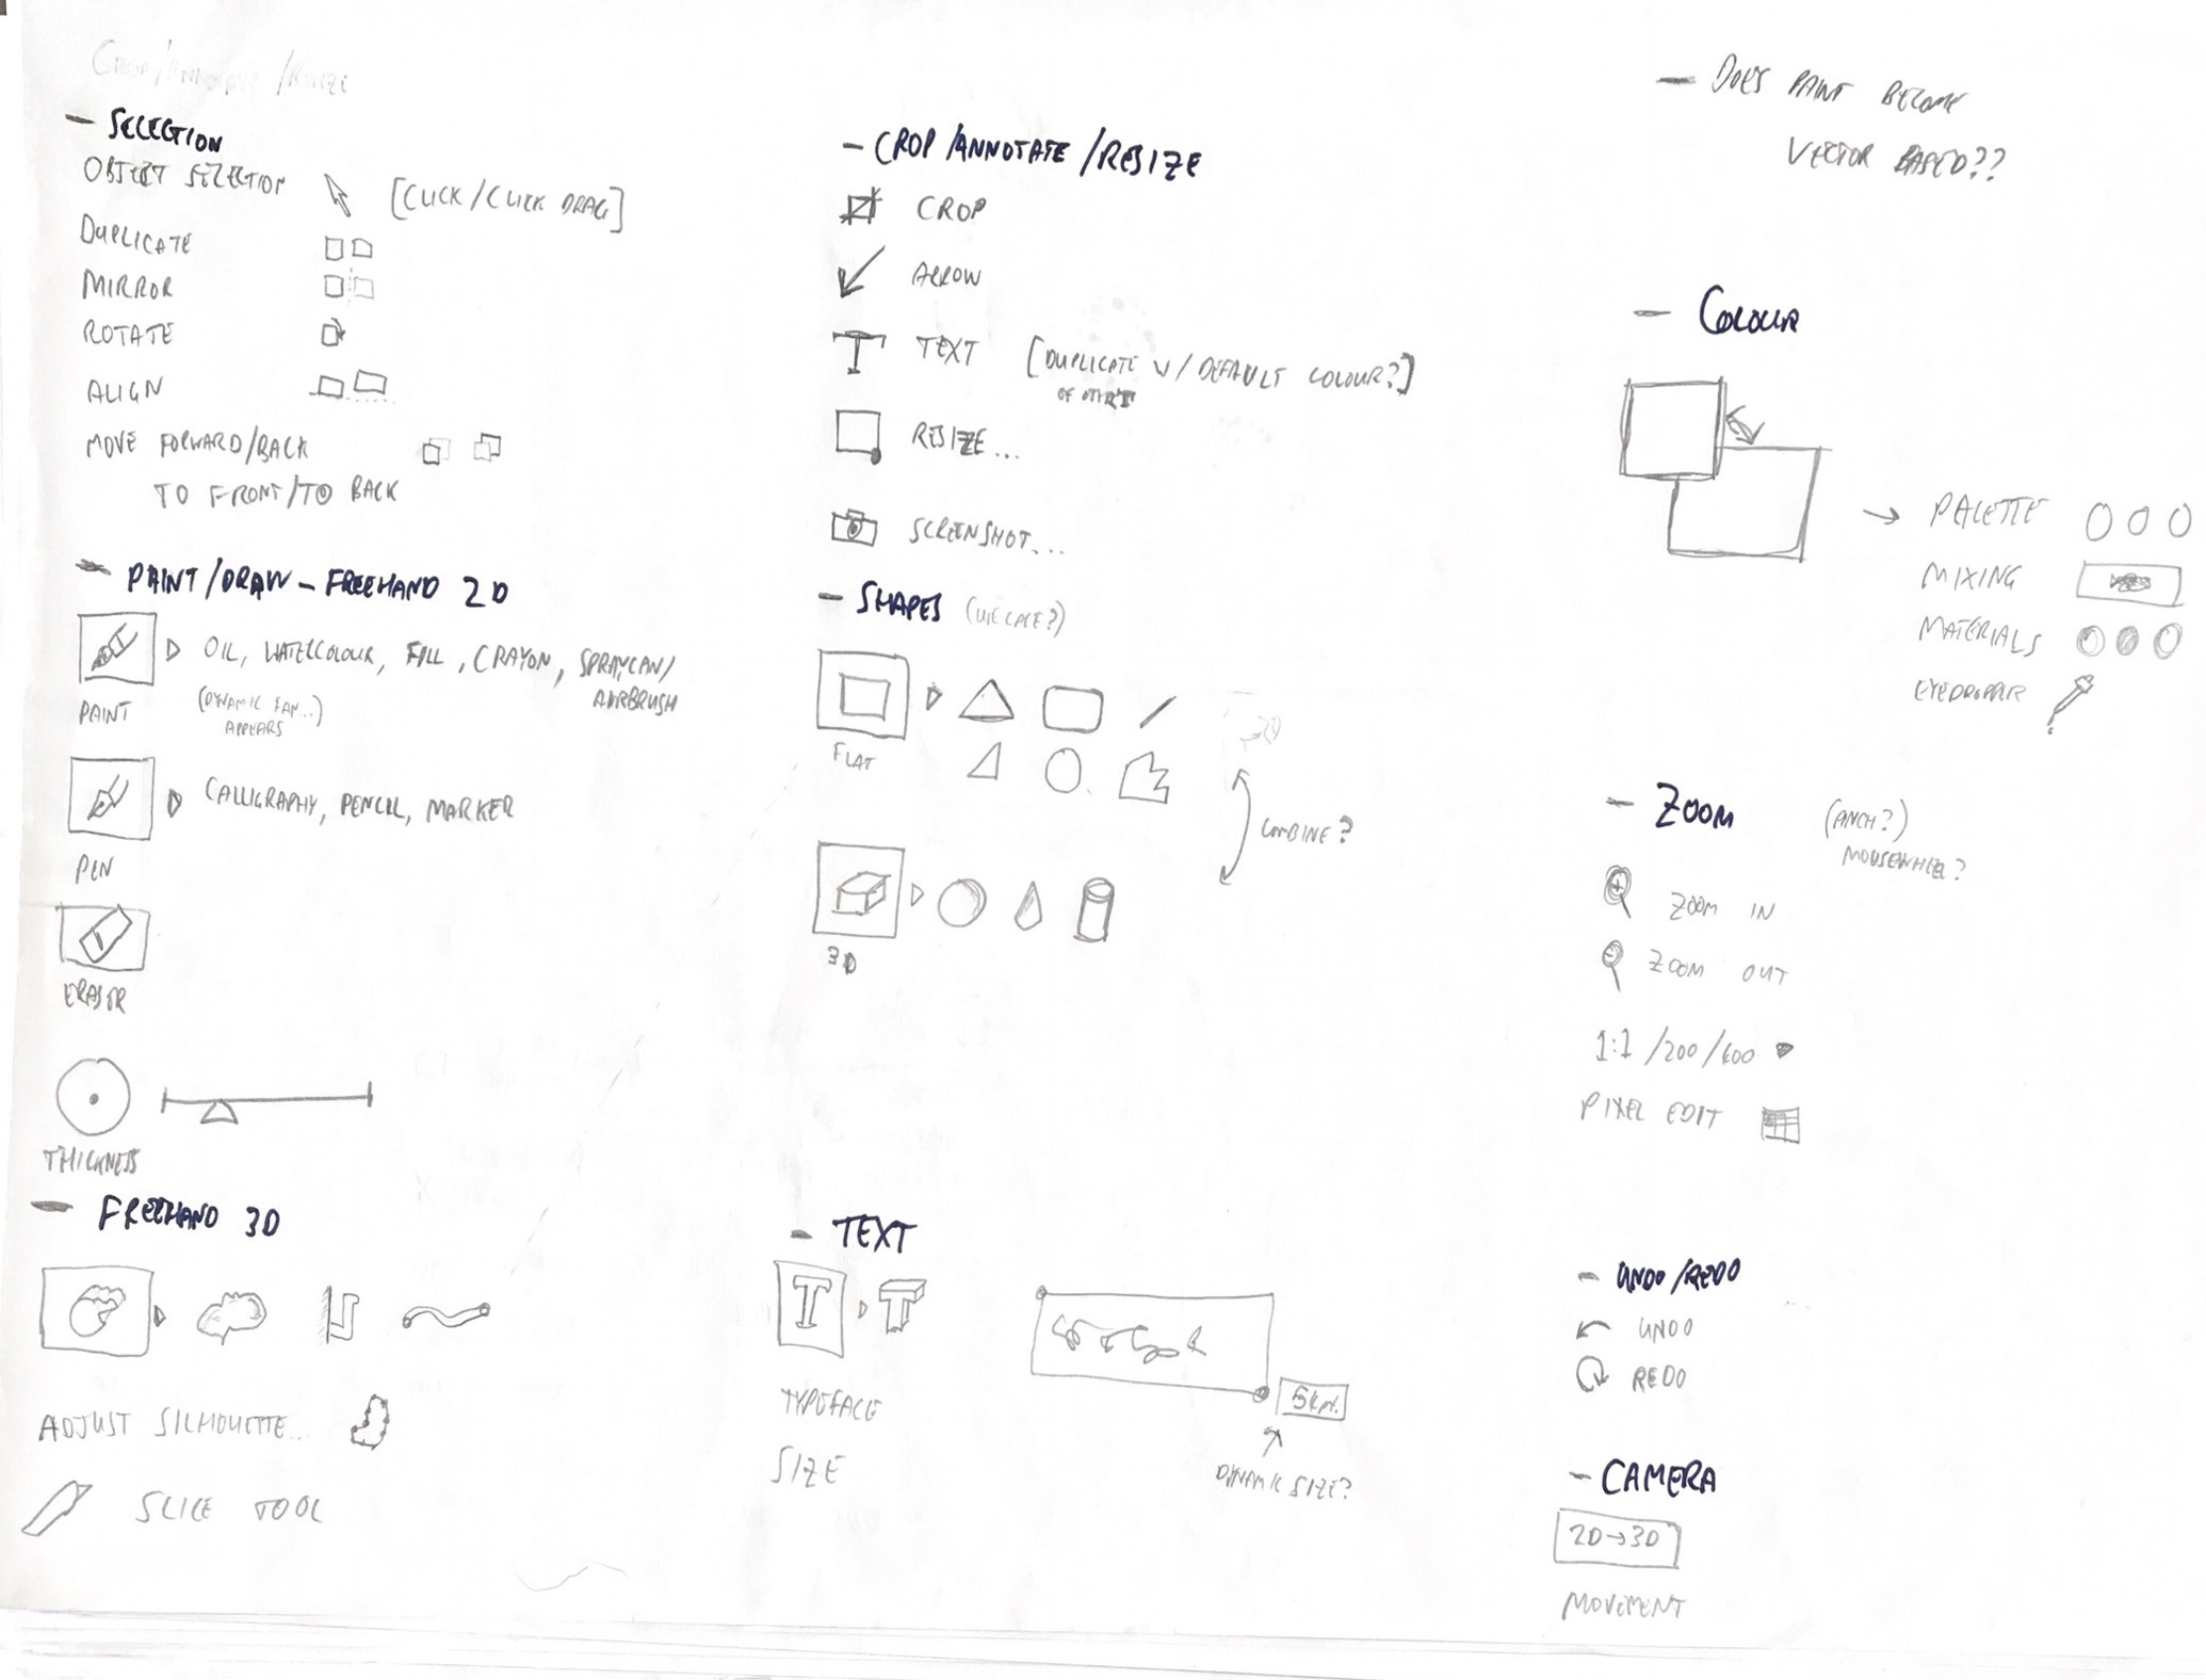 CROP/ANNOTATE/RESIZE
- SELECTION
OBJECT SELECTION [CLICK/CLICK DRAG]
DUPLICATE
MIRROR
ROTATE
ALIGN
MOVE FORWARD/BACK
TO FRONT/TO BACK
- PAINT/DRAW - FREEHAND 2D
OIL, WATERCOLOUR, FILL, CRAYON, SPRAYCAN/
AIRBRUSH
PAINT
(DYNAMIC FAN...)
APPEARS
CALLIGRAPHY, PENCIL, MARKER
PEN
ERASER
THICKNESS
- FREEHAND 3D
ADJUST SILHOUETTE...
SLICE TOOL
- CROP/ANNOTATE/RESIZE
CROP
ARROW
T TEXT [DUPLICATE W/ DEFAULT COLOUR?]
OF OTHER T
RESIZE...
SCREENSHOT...
- SHAPES (USE CASE?)
FLAT
COMBINE?
3D
- TEXT
T T
TYPEFACE
SIZE
DYNAMIC SIZE?
- DOES PAINT BECOME
VECTOR BASED??
- COLOUR
→ PALETTE
MIXING
MATERIALS
EYEDROPPER
- ZOOM
MOUSEWHEEL?
ZOOM IN
ZOOM OUT
1:1/200/400
PIXEL EDIT
- UNDO/REDO
UNDO
REDO
- CAMERA
2D→3D
MOVEMENT